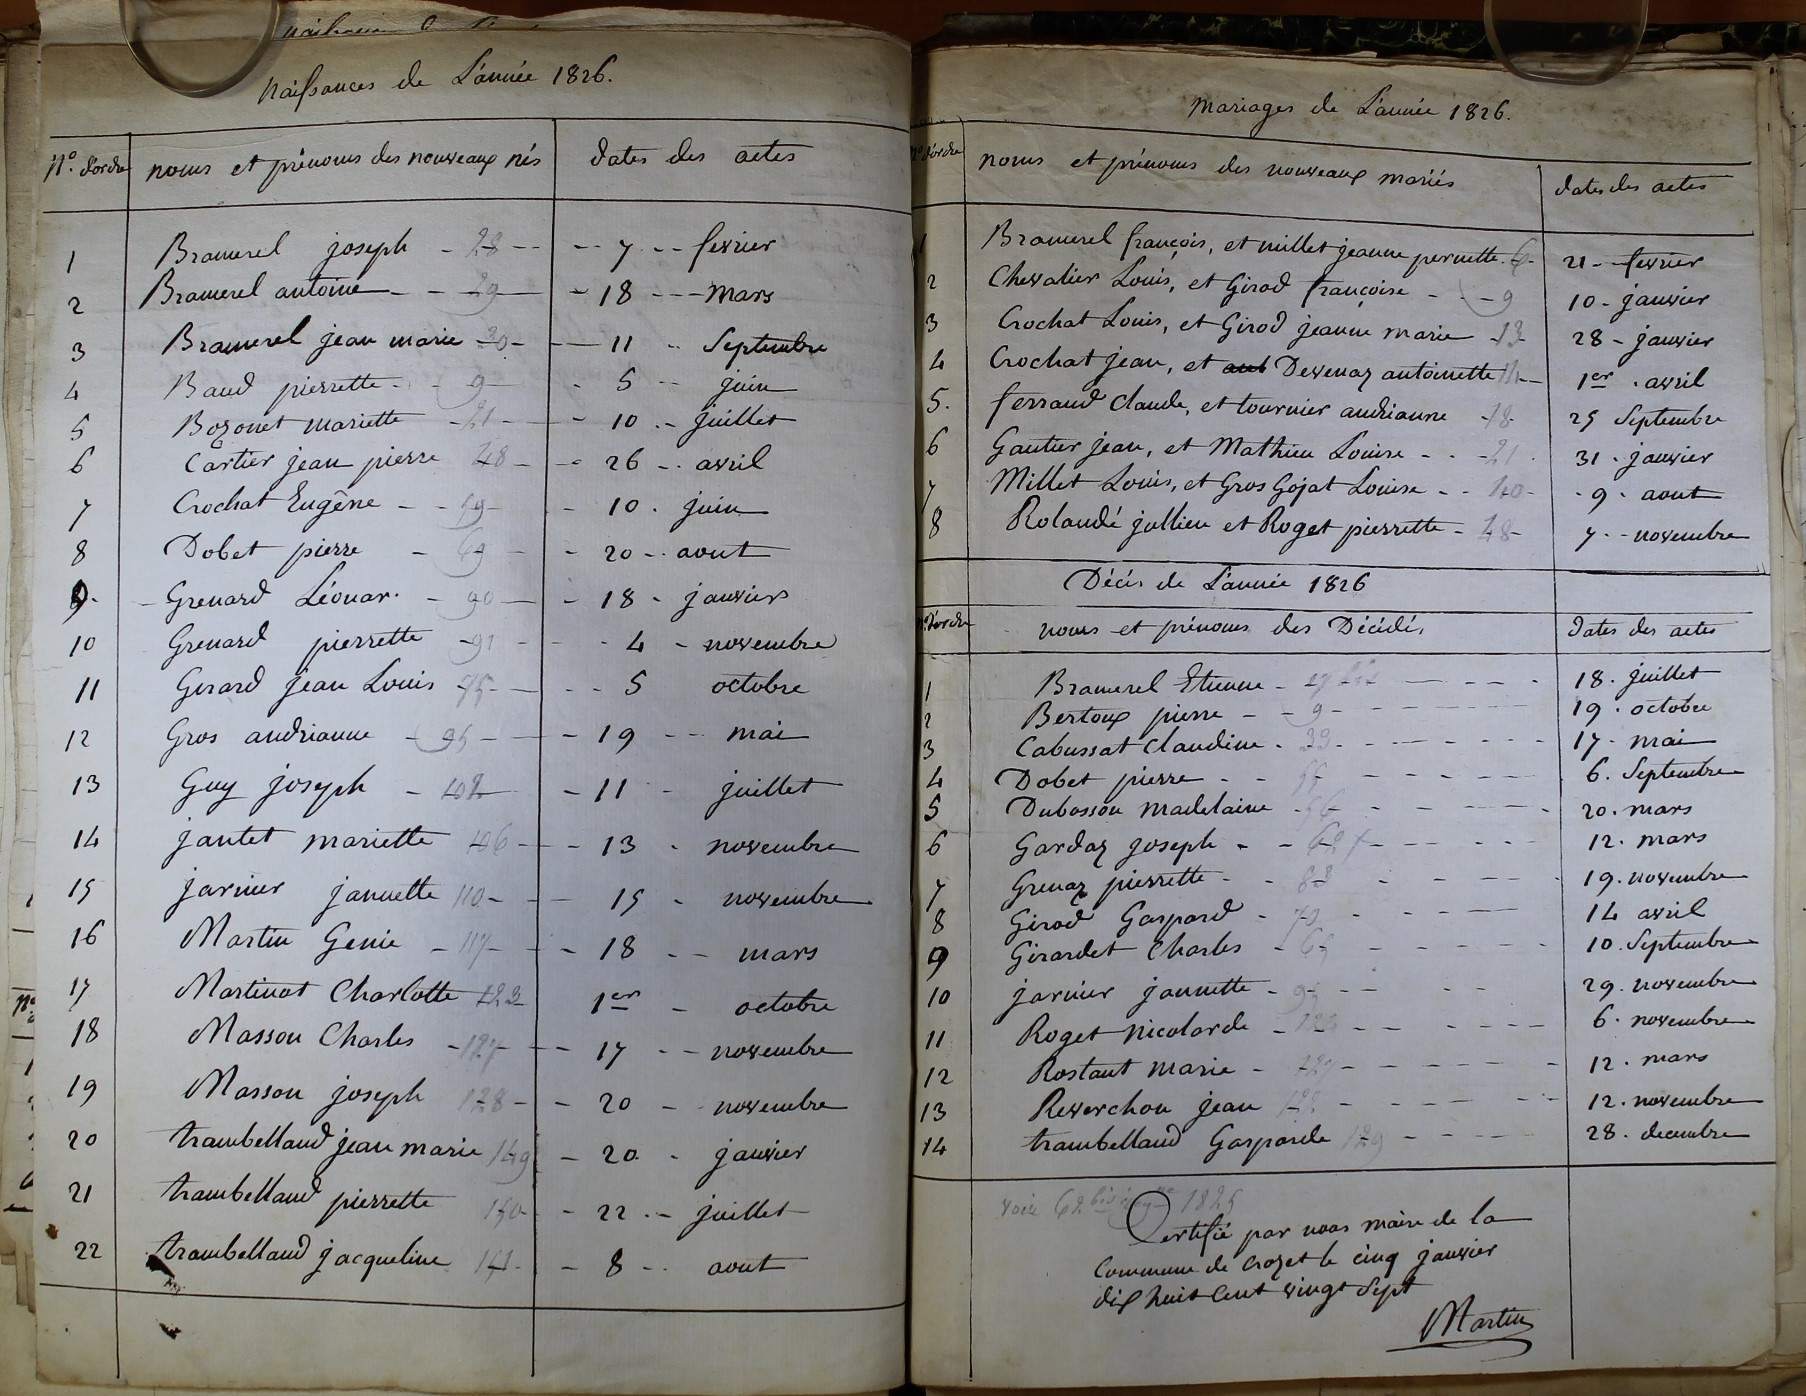 Naissances de L'année 1826.
N.o d'ordre noms et prénoms des nouveaux nés dates des actes
1 Bramerel joseph - 28 - 7 - fevrier
2 Bramerel antoine - 29 - 18 - Mars
3 Bramerel jean marie 30 - 11 - Septembre
4 Baud pierrette - 9 - 5 - juin
5 Bozonet mariette - 21 - 10 - juillet
6 Cartier jean pierre 48 - 26 - avril
7 Crochat Eugêne - 59 - 10 . juin
8 Dobet pierre - 69 - 20 - aout
9. Grenard Léonar. - 90 - 18 - janviers
10 Grenard pierrette - 91 - 4 - novembre
11 Girard jean Louis - 75 - 5 octobre
12 Gros andrianne - 95 - 19 - mai
13 Guy joseph - 102 - 11 - juillet
14 jantet mariette 106 - 13 - novembre
15 jarnier jannette 110 - 15 - novembre
16 Martin Genie - 117 - 18 - mars
17 Martinot Charlotte 123 1er - octobre
18 Masson Charles - 127 - 17 - novembre
19 Masson joseph 128 - 20 - novembre
20 trambelland jean marie 149 - 20 - janvier
21 trambelland pierrette 150 - 22 - juillet
22 trambelland jacqueline 151 - 8 - aout
Mariages de L'année 1826.
N.o d'ordre noms et prénoms des nouveaux mariés dates des actes
1 Bramerel françois, et millet jeanne pernette. 6 - 21 - fevrier
2 Chevalier Louis, et Girod françoise - 9 10 - janvier
3 Crochat Louis, et Girod jeanne marie - 13 - 28 - janvier
4 Crochat jean, et ant Devenaz antoinette 14 - 1er . avril
5. ferraud claude, et tournier andrianne - 18 - 25 Septembre
6 Gautier jean, et Mathieu Louise - 21 . 31 . janvier
7 Millet Louis, et Gros Gojat Louise - 40 - 9 . aout
8 Rolandé jullien et Roget pierrette - 48 - 7 - novembre
Décès de L'année 1826
N.o d'ordre noms et prénoms des Décédé, dates des actes
1 Bramerel Etienne - bis - 18 . juillet
2 Bertoux pierre - 9 - 19 . octobre
3 Cabussat Claudine - 33 - 17 - mai
4 Dobet pierre - 55 - 6 . Septembre
5 Dubosson Madelaine - 56 - 20 . mars
6 Gardaz joseph - 62 + - 12 . mars
7 Grenaz pierrette - 83 - 19 . novembre
8 Girod Gaspard - 70 - 14 avril
9 Girardet Charles - 69 - 10 . Septembre
10 jarnier jannette - 95 - 29 . novembre
11 Roget Nicolarde - 6 . novembre
12 Rostant marie - 12 . mars
13 Reverchon jean - 12 . novembre
14 trambelland Gasparde 129 - 28 . decembre
voir 62 bis 1825
Certifié par nous maire de la
Commune de Crozet le cinq janvier
dix huit cent vingt Sept
Martin